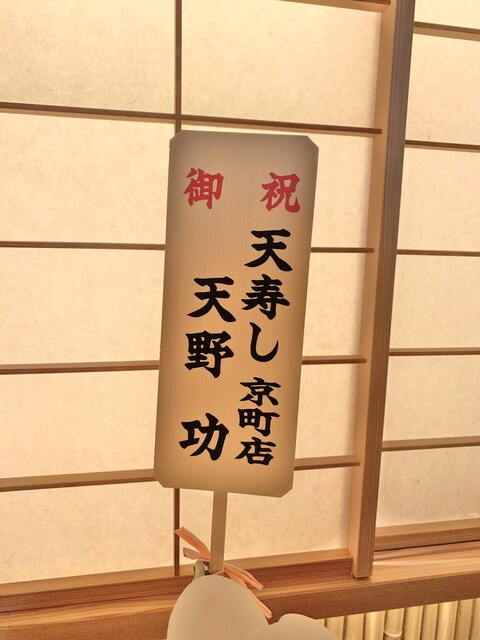 祝御
天寿し 京町店
天野 功